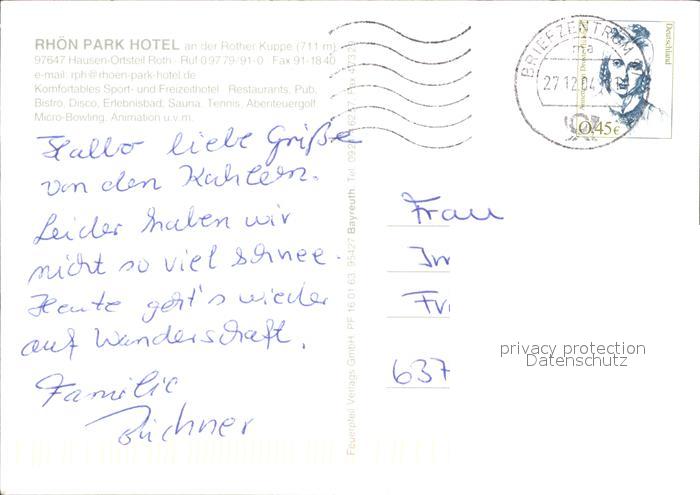 RHÖN PARK HOTEL an der Rother Kuppe (711 m)
97647 Hausen-Ortsteil Roth · Ruf 0 97 79/91-0 Fax 91-18 40
e-mail: rph@rhoen-park-hotel.de
Komfortables Sport- und Freizeithotel Restaurants, Pub,
Bistro, Disco, Erlebnisbad, Sauna, Tennis, Abenteuergolf
Micro-Bowling, Animation u.v.m.
Hallo liebe Grüße
von den
Leider haben wir
nicht so viel Schnee.
Heute geht's wieder
auf Wanderschaft.
Familie
Feuerpfeil Verlags GmbH PF 16 01 63 95427 Bayreuth Tel
BRIEFZENTRUM
27.12.04
Deutschland
0,45€
Frau
637
privacy protection
Datenschutz